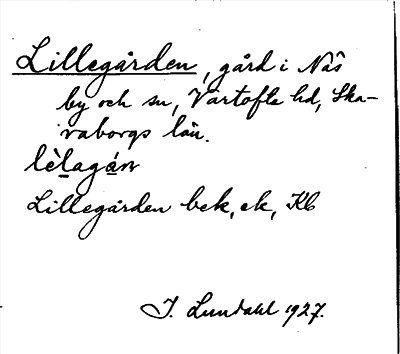 Lillegården, gård i Nås
by och sn, Vartofta hd, Ska-
raborgs län.
lèlagán
Lillegården bek, ek, Kb
I. Lundahl 1927.